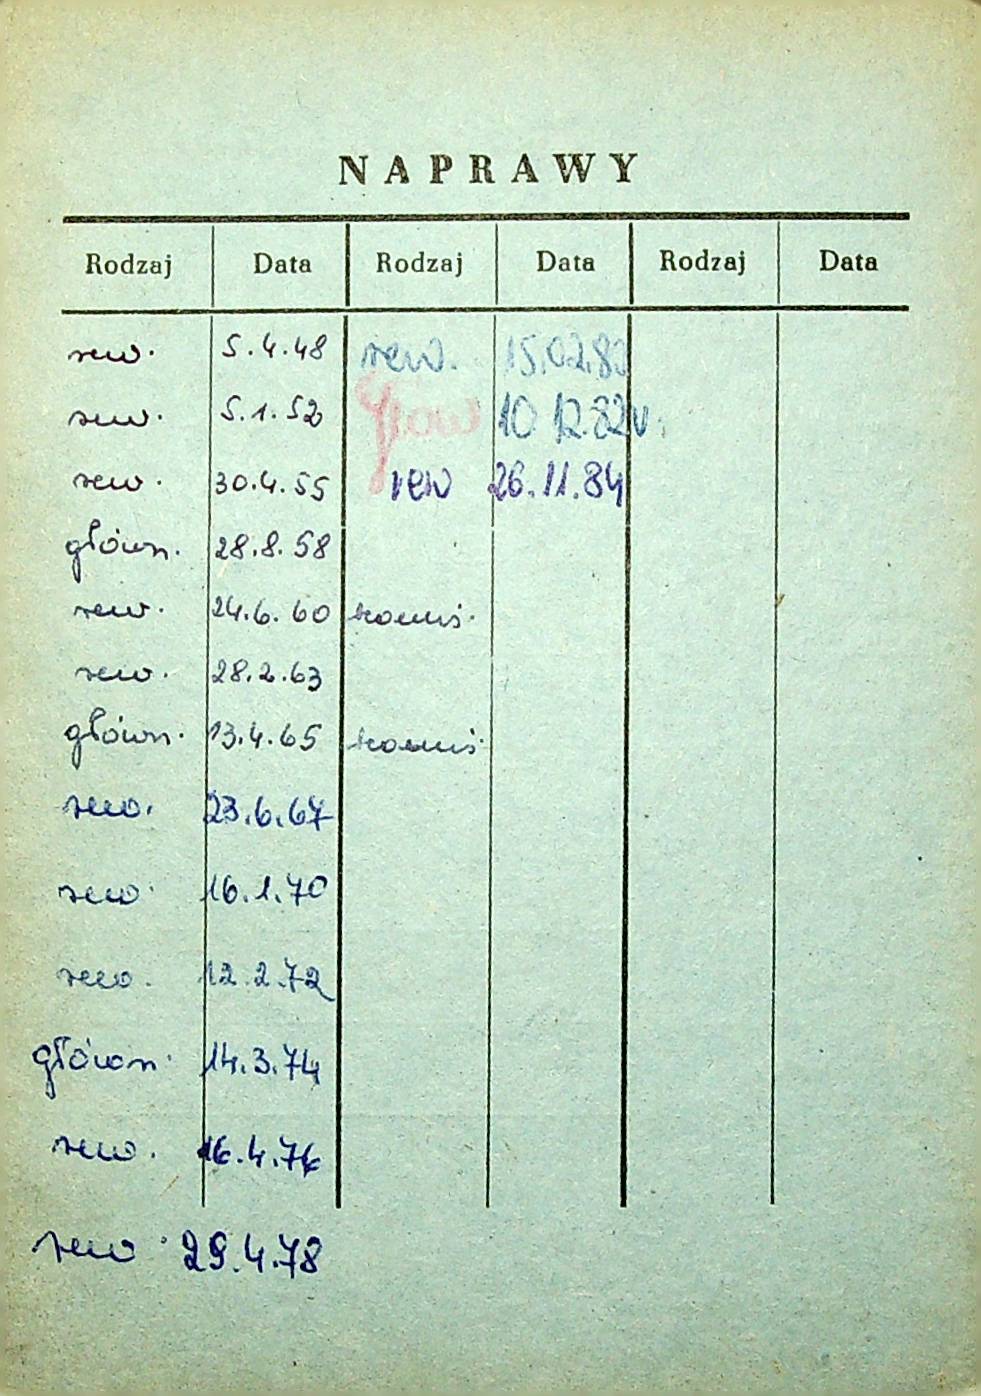 NAPRAWY
Rodzaj Data Rodzaj Data Rodzaj Data
rew. 5.4.48 rew. 15.02.80
rew. 5.1.52 Głow 10 12.82r.
rew. 30.4.55 rew 26.11.84
główn. 28.8.58
rew. 24.6.60
rew. 28.2.63
główn. 13.4.65
rew. 23.6.67
rew. 16.1.70
rew. 12.2.72
główn. 14.3.74
rew. 16.4.76
rew. 29.4.78